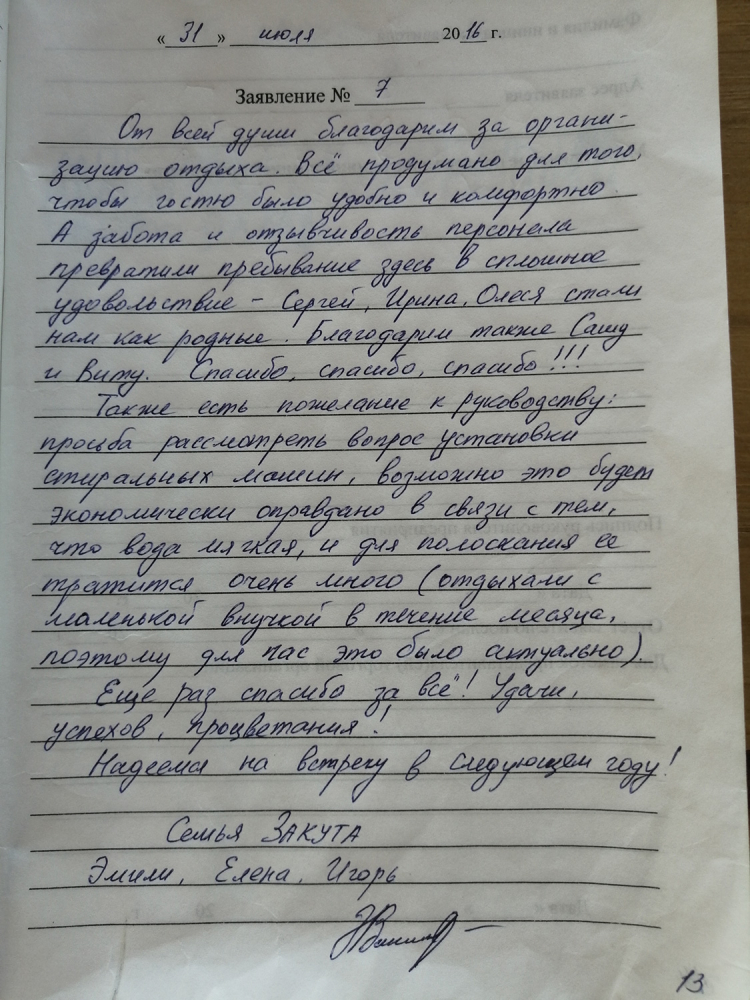 « 31 » июля 2016 г.
Заявление № 7
От всей души благодарим за органи-
зацию отдыха. Всё продумано для того,
чтобы гостю было удобно и комфортно.
А забота и отзывчивость персонала
превратили пребывание здесь в сплошное
удовольствие – Сергей, Ирина, Олеся стали
нам как родные. Благодарим также Сашу
и Виту. Спасибо, спасибо, спасибо!!!
Также есть пожелание к руководству:
просьба рассмотреть вопрос установки
стиральных машин, возможно это будет
экономически оправдано в связи с тем,
что вода мягкая, и для полоскания ее
тратится очень много (отдыхали с
маленькой внучкой в течение месяца,
поэтому для нас это было актуально).
Еще раз спасибо за всё! Удачи,
успехов, процветания!
Надеемся на встречу в следующем году!
Семья ЗАКУТА
Эмили, Елена, Игорь
13